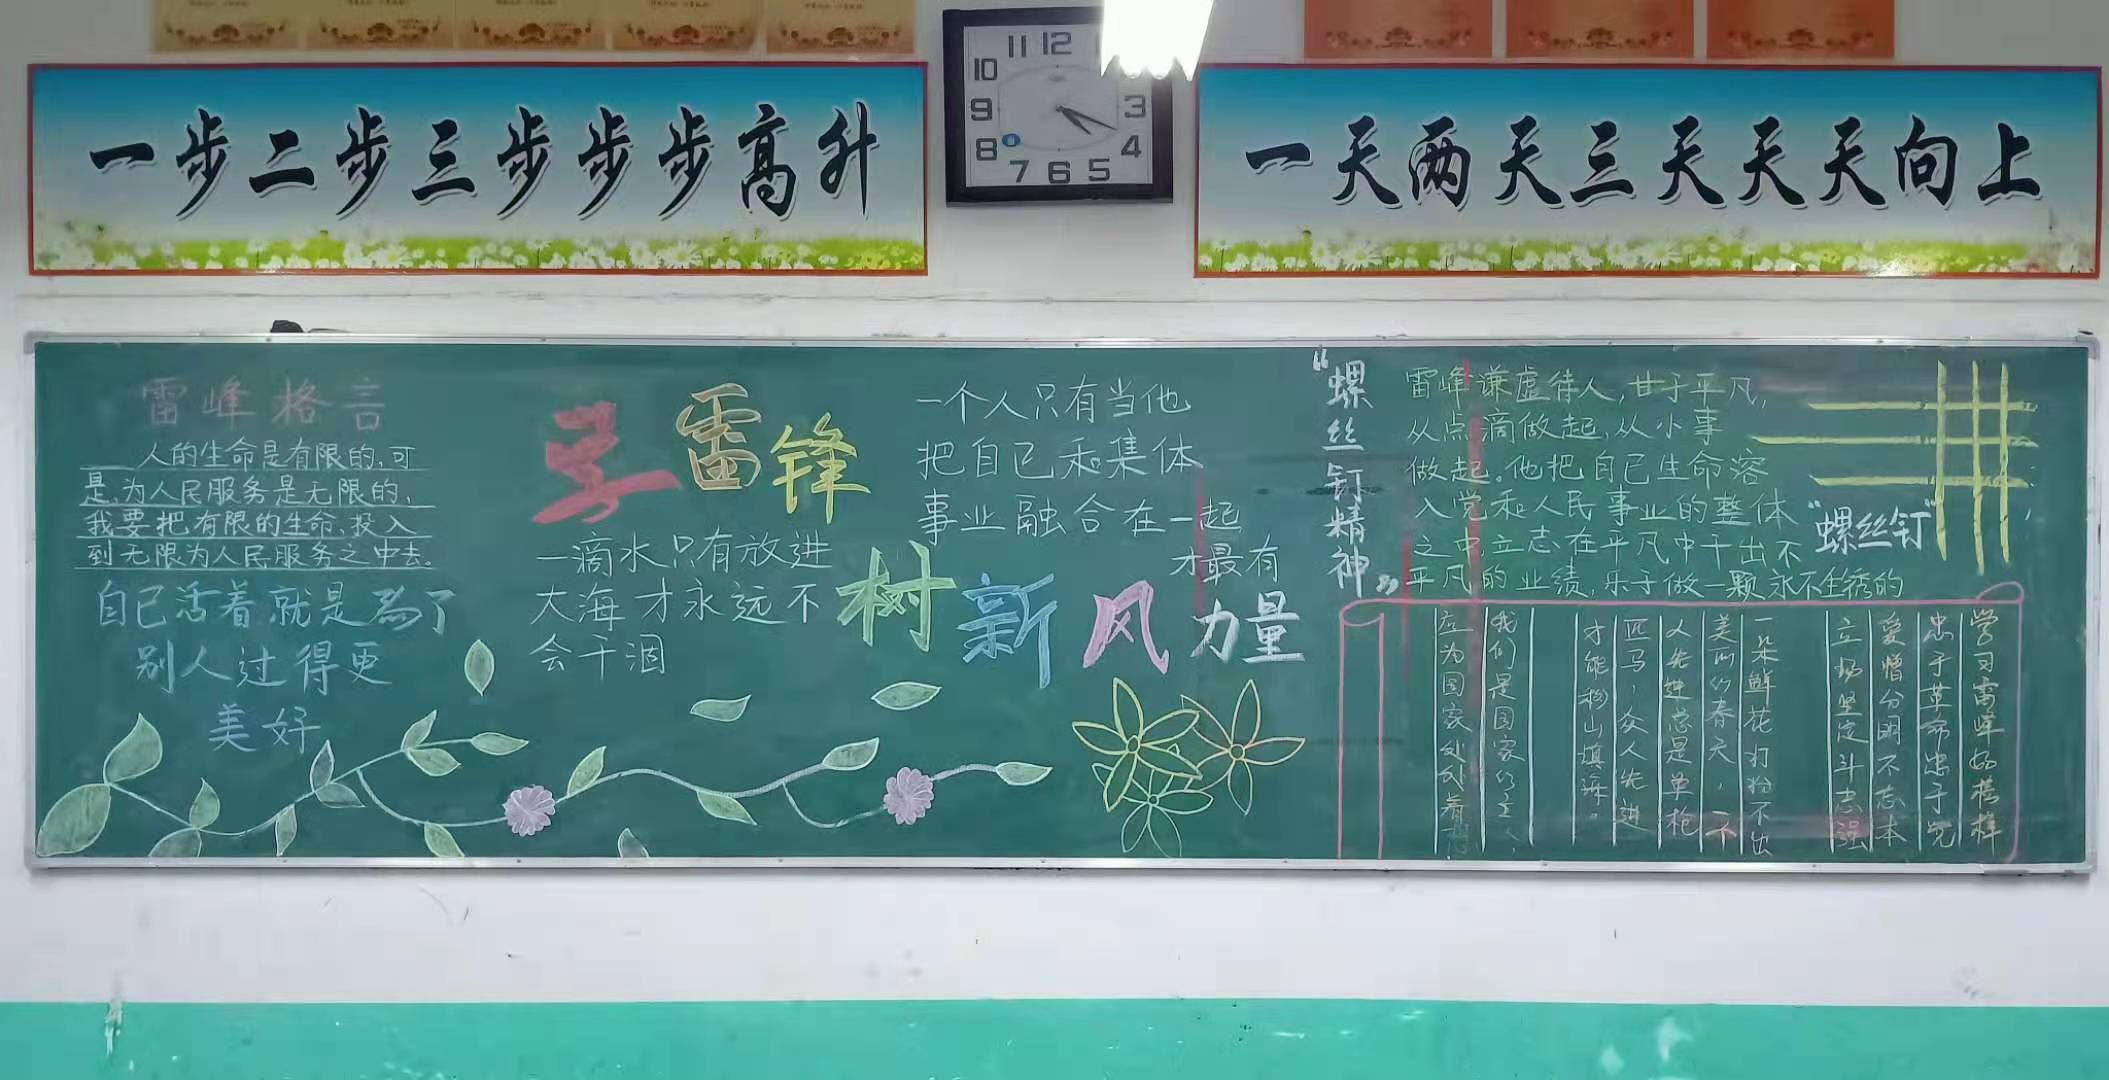 一步二步三步步步高升
11 12
10
9
8
7 6 5
4
3
一天两天三天天天向上
雷峰格言
人的生命是有限的,可
是,为人民服务是无限的,
我要把有限的生命,投入
到无限为人民服务之中去。
自己活着就是为了
别人过得更
美好
学雷锋
一滴水只有放进
大海才永远不
会干涸
树新风
一个人只有当他
把自己和集体
事业融合在一起
才最有
力量
“螺丝钉精神”
雷峰谦虚待人,甘于平凡,
从点滴做起,从小事
做起。他把自己生命溶
入党和人民事业的整体
之中,立志在平凡中干出不
平凡的业绩,乐于做一颗永不生锈的
“螺丝钉”
学习雷峰好榜样
忠于革命忠于党
爱憎分明不忘本
立场坚定斗志强
一朵鲜花打扮不出
美丽的春天,一个
人先进总是单枪
匹马,众人先进
才能移山填海。
我们是国家的主人,
应为国家处处着